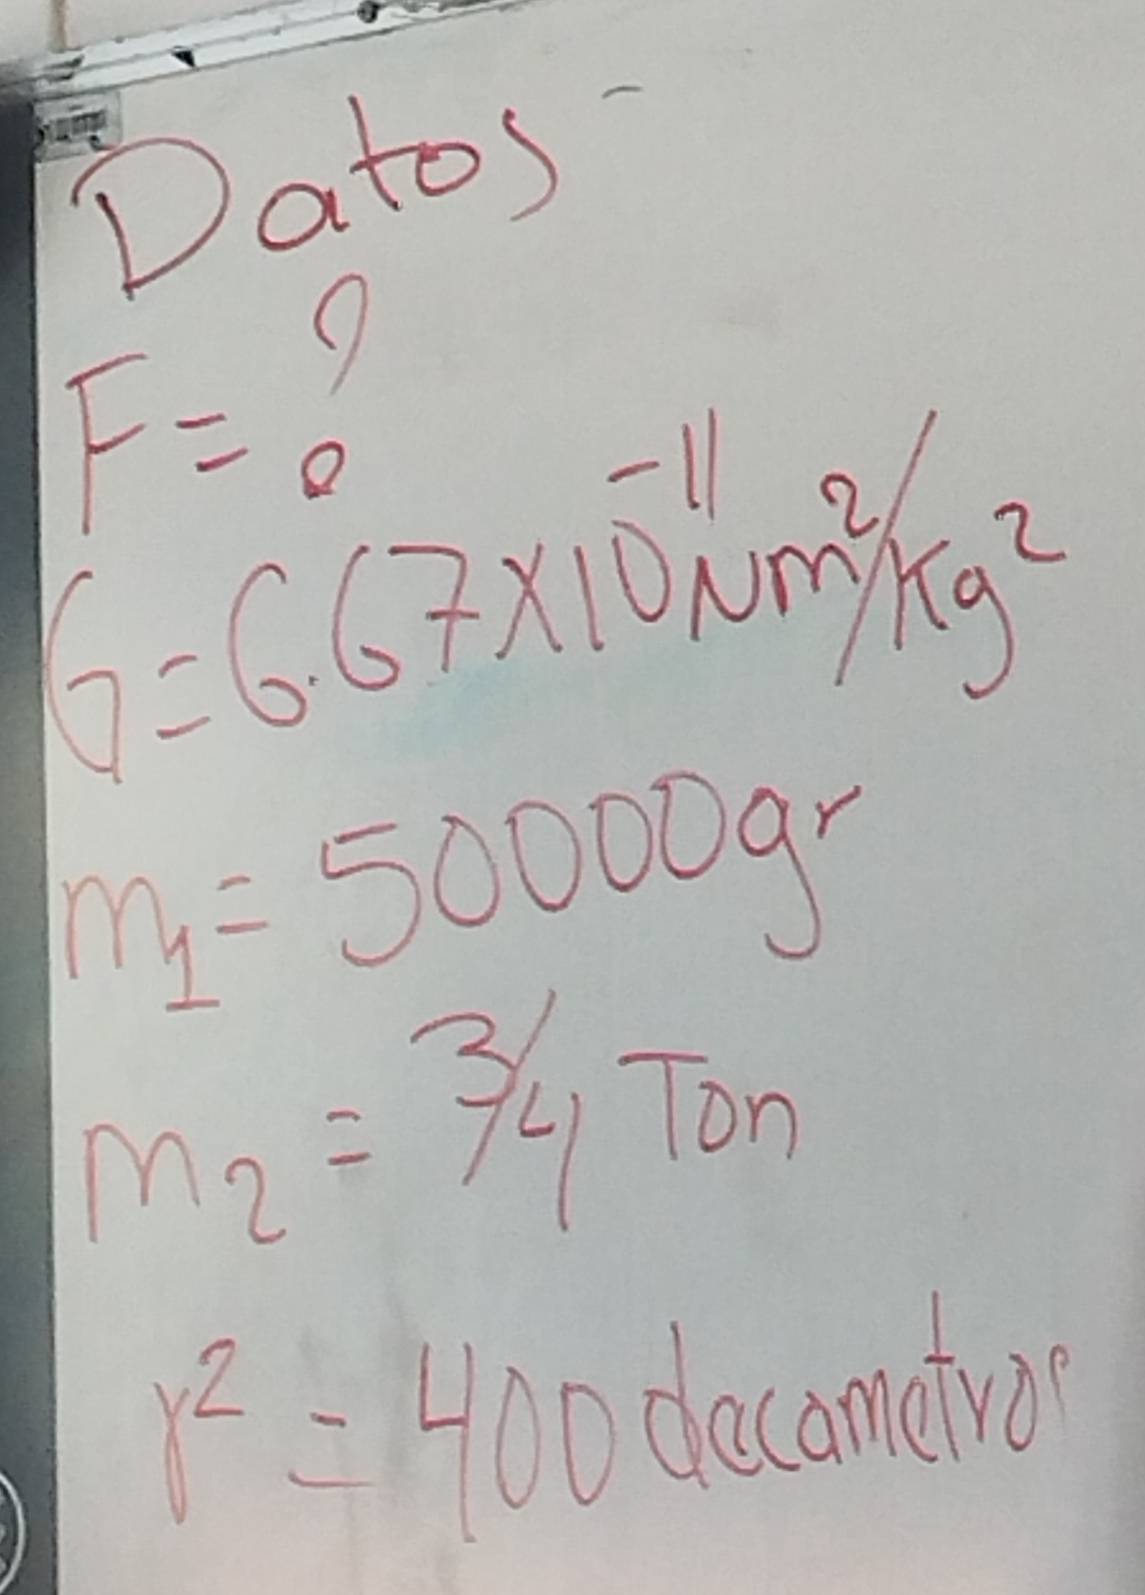 Datos
F = ?
G = 6.67x10⁻¹¹ Nm²/Kg²
m₁ = 50000gr
m₂ = 3/4 Ton
r² = 400 decametros